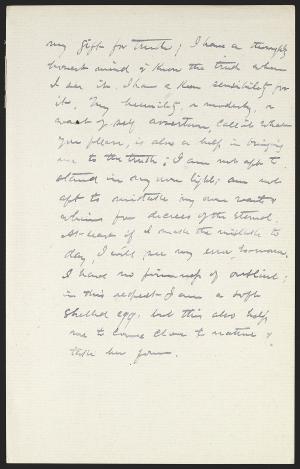 my gift for truth; I have a thoroughly
honest mind & know the truth when
I see it. I have a keen sensibility for
it. My humility, or modesty, or
want of self assertion, call it what
you please, is also a help in bringing
me to the truth; I am not apt to
stand in my own light; am not
apt to mistake my own wants &
whims for decrees of the Eternal.
At least if I make the mistake to
day, I will see my error tomorrow.
I have no firmness of outline;
in this respect I am a soft
shelled egg. but this also helps
me to come close to nature &
take her form.